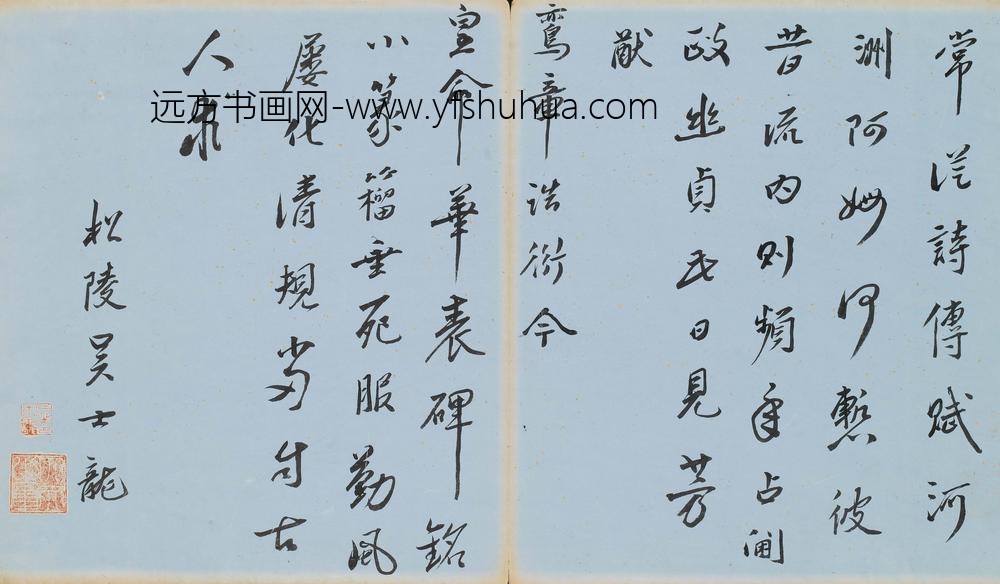 常從詩傳賦河
洲阿姆何慙彼
昔流內則頻年占閫
政幽貞氏日見芳
猷
鸞章誥衍今
皇命華表碑銘
小篆籀垂死服勤風
屢化清規當付古
人
松陵吳士龍
远方书画网-www.yfshuhua.com